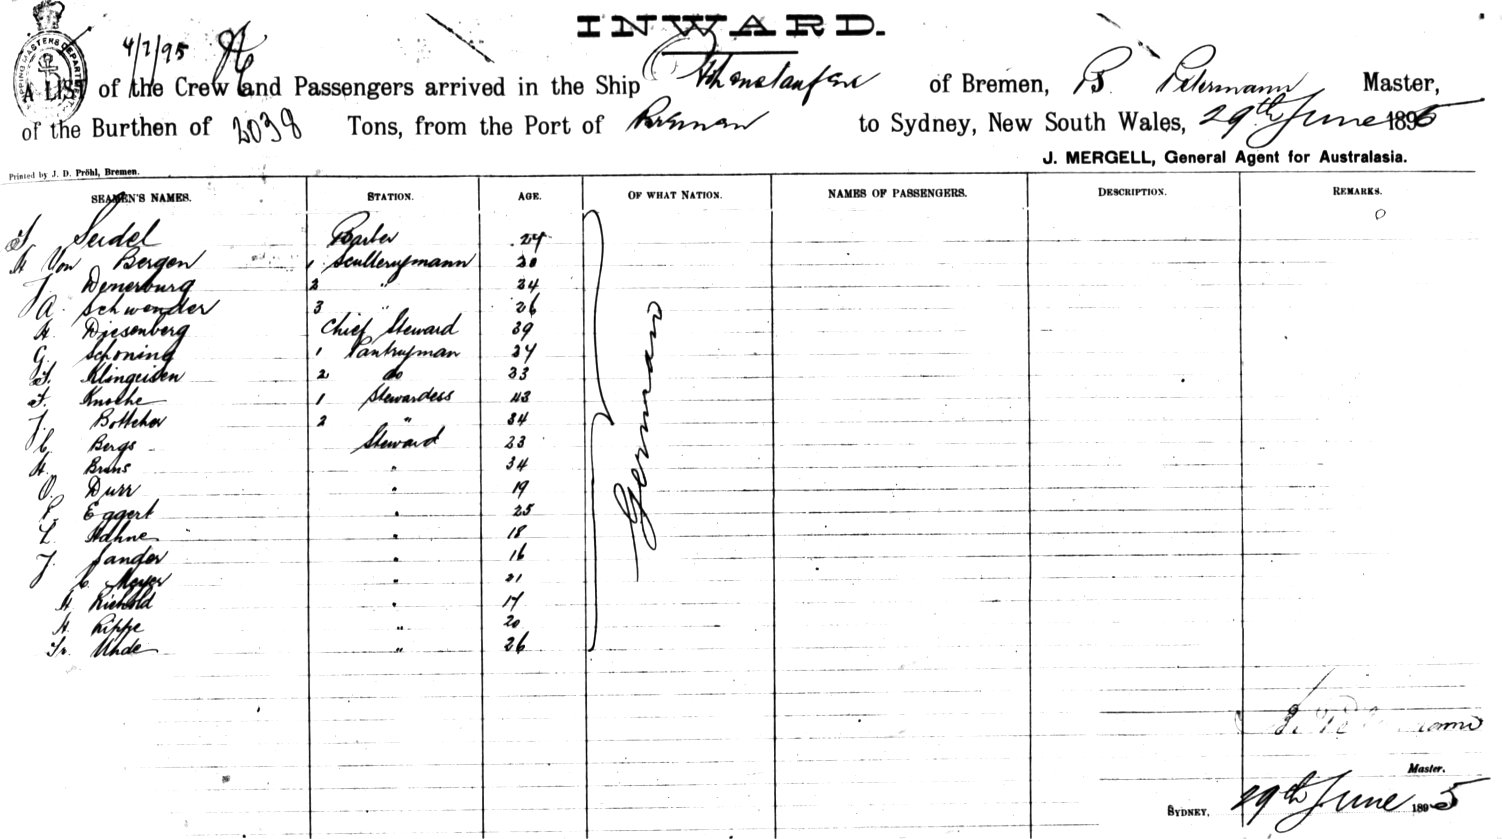 INWARD.
SHIPPING MASTERS DEPARTMENT
4/7/95
A LIST of the Crew and Passengers arrived in the Ship Hohenstaufen of Bremen, B. Petermann Master,
of the Burthen of 2038 Tons, from the Port of Bremen to Sydney, New South Wales, 29th June 1895
J. MERGELL, General Agent for Australasia.
Printed by J. D. Pröhl, Bremen.
SEAMEN'S NAMES. STATION. AGE. OF WHAT NATION. NAMES OF PASSENGERS. DESCRIPTION. REMARKS.
Seidel Barber 24
H Von Bergen 1 Scullerymann 20
J Denerburg 2 " 24
A. Schwender 3 " 26
H. Diesenberg Chief Steward 39
G. Schoning 1 Pantryman 24
Klingeisen 2 do 23
F. Knoche 1 Stewardess 43
J. Bottcher 2 " 34
C. Bergs Steward 23
H. Brens " 34
O. Durr " 19
P. Eggert " 25
L. Hahne " 18
J. Sander " 16
C. Meyer " 21
H. " 17
H. Rippe " 20
Fr. Uhde " 26
German
Master.
SYDNEY, 29th June 1895